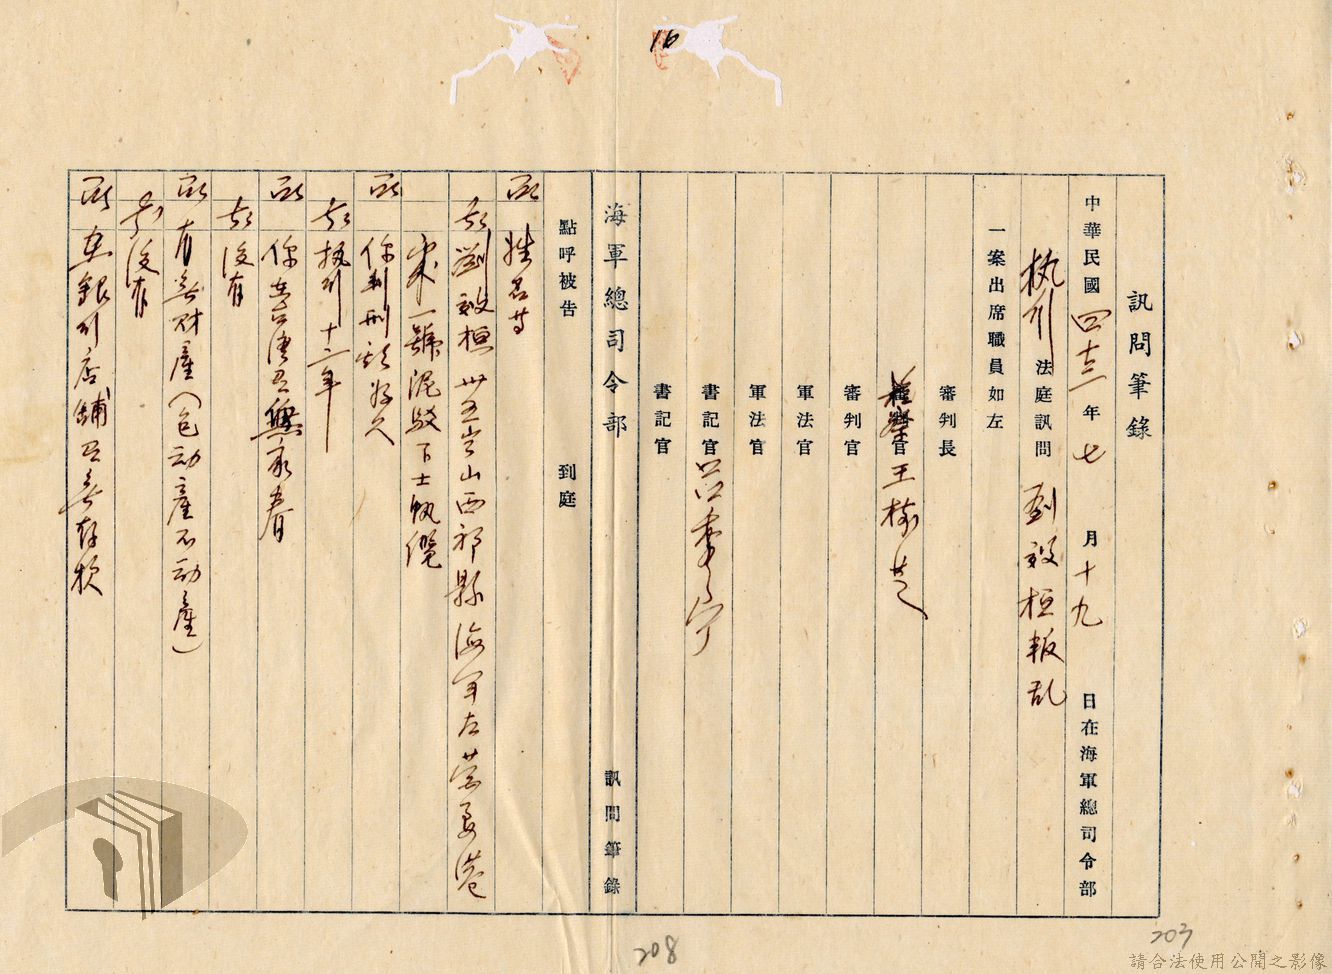 16
訊問筆錄
中華民國四十三年七月十九日在海軍總司令部
執行法庭訊問劉效桓叛乱
一案出席職員如左
審判長
王
審判官
軍法官
軍法官
書記官
書記官
海軍總司令部 訊問筆錄
點呼被告 到庭
問 姓名等
答 劉效桓 卅五岁山西祁縣海军左营
一號泥駁下士帆纜
問 你判刑好久
答 执行十二年
問 你
答 沒有
問 有無財產(包动產不动產)
答 沒有
問 在銀行店鋪有無存款
208
203
請合法使用公開之影像